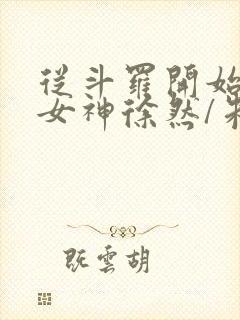 從斗羅開始
女神徐然/
既雲胡